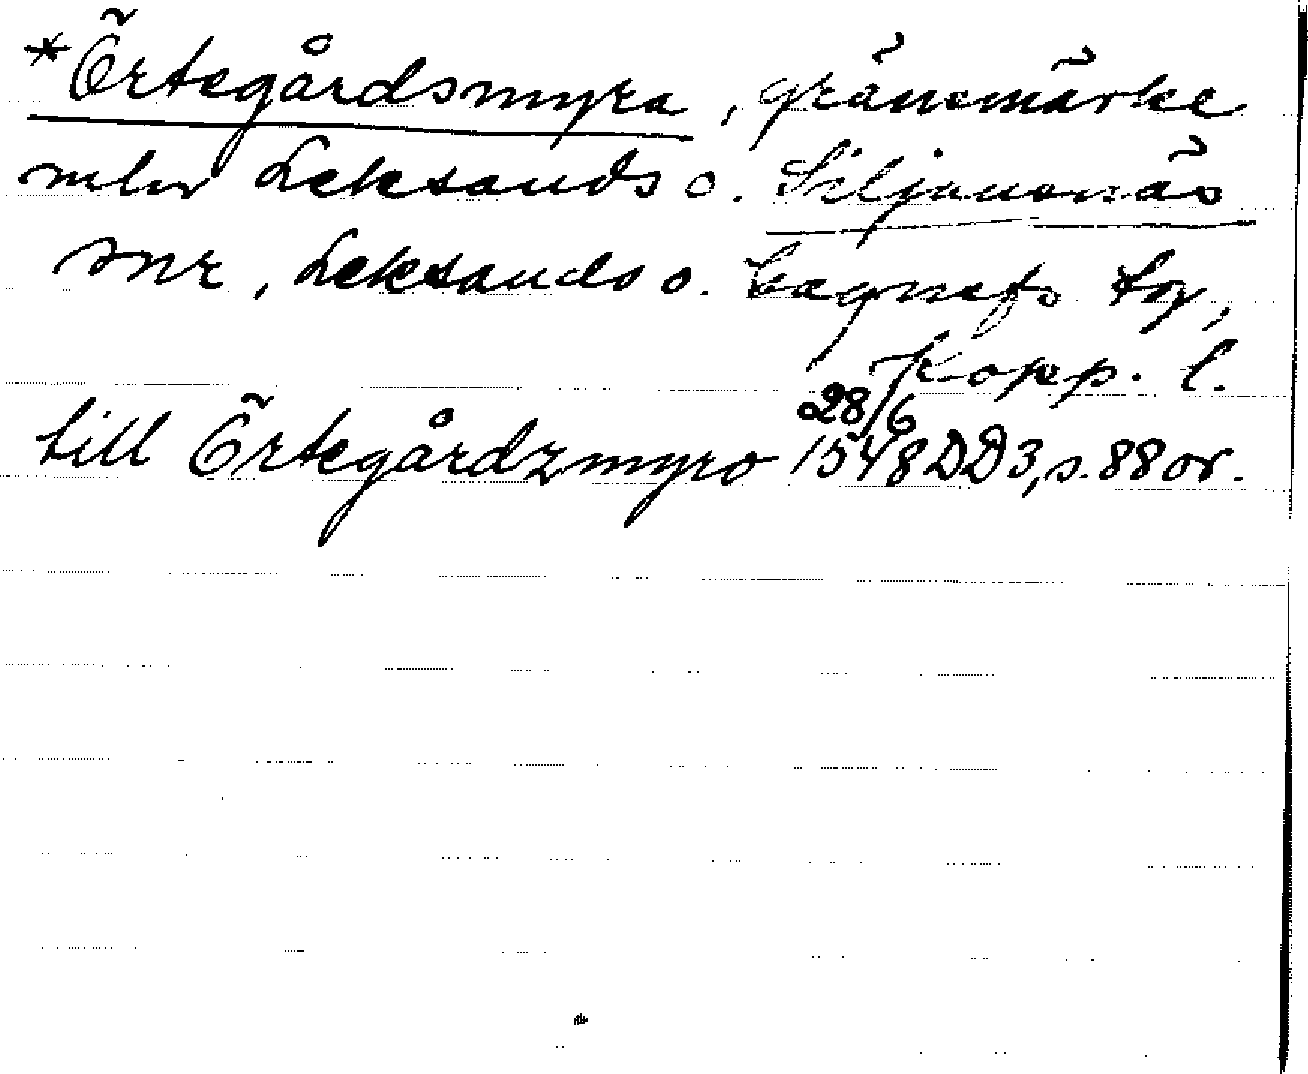 *Örtegårdsmyra, gränsmärke
mln Leksands o. Siljansnäs
snr, Leksands o. Gagnefs tg,
Kopp. l.
till Örtegårdzmyro 28/6 1548 DD3, s. 88 or.